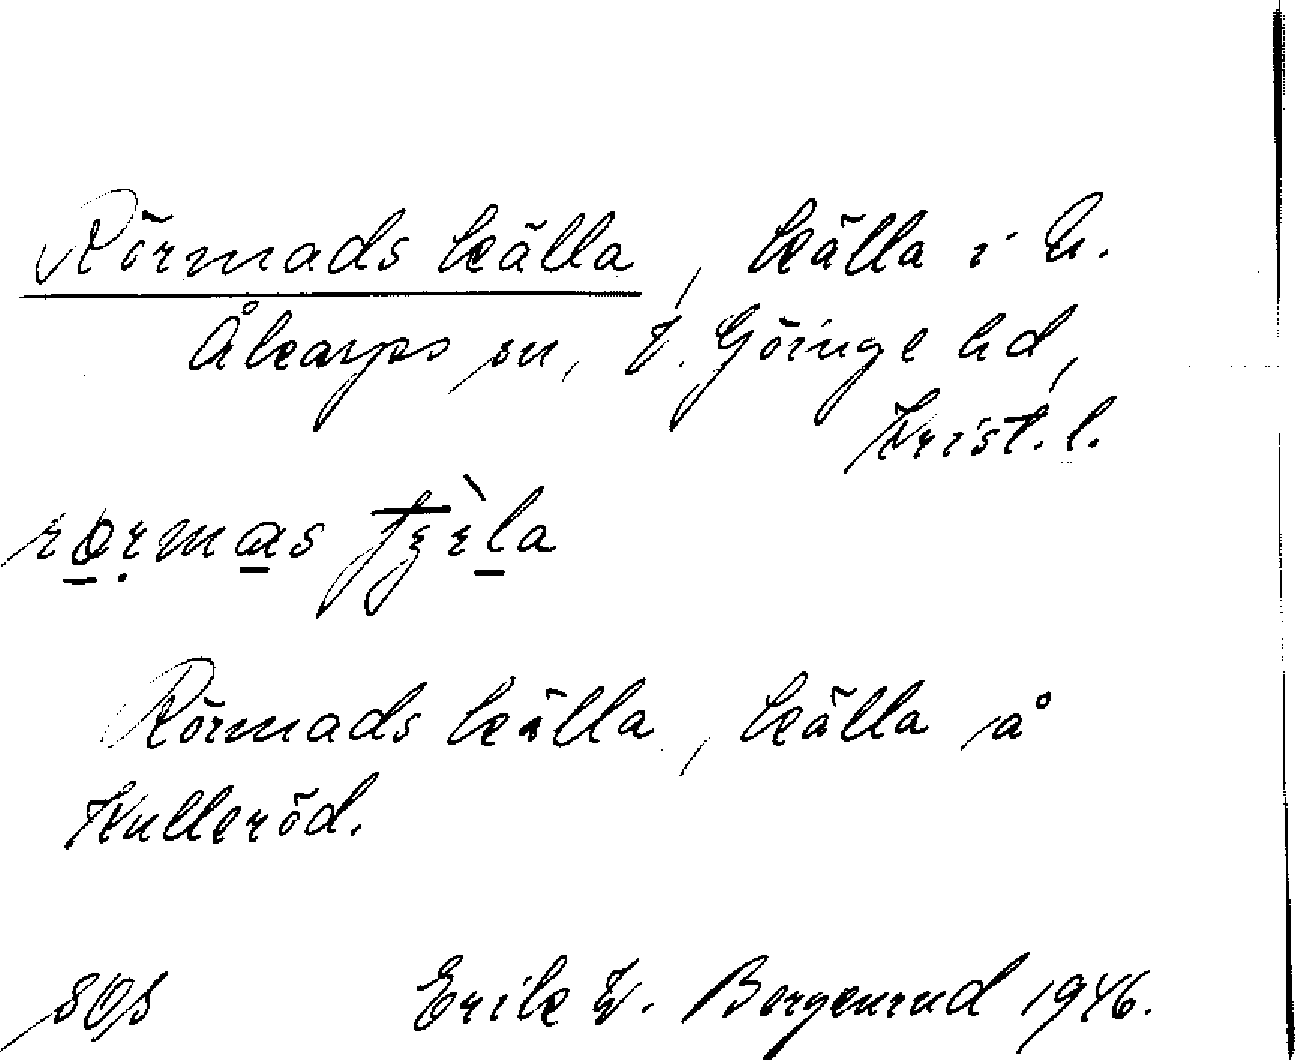 Rörmads källa, källa i N.
Åkarps sn, V. Göinge hd,
Krist. l.
Rörmads källa, källa å
Kulleröd.
Erik W. Bergenrud 1946.